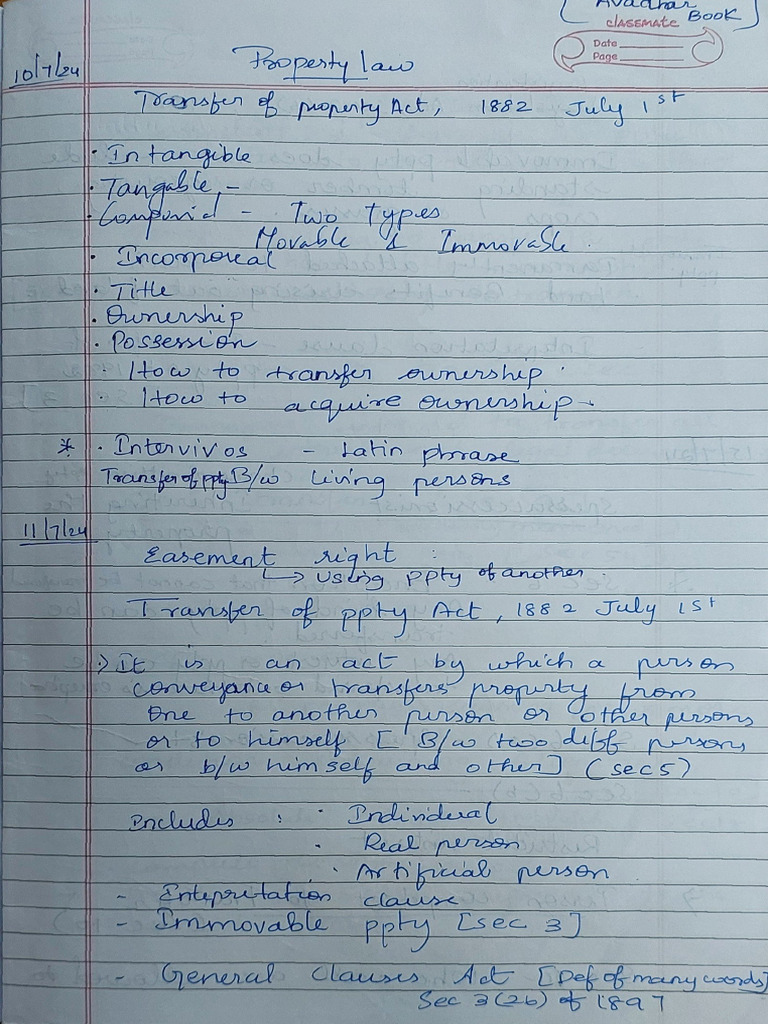 [Avadhar
BOOK]
CLASSMATE
Date
Page
10/7/24
Property law
Transfer of property Act, 1882 July 1st
· Intangible
· Tangable -
· Componid - Two Types
Movable & Immovable.
· Incorporeal
· Title
· Ownership
· Possession
· How to transfer ownership.
· How to acquire ownership -
* · Intervivos - Latin phrase
Transfer of ppty B/w living persons
11/7/24
Easement right :
↳ Using ppty of another.
Transfer of ppty Act, 1882 July 1st
:) It is an act by which a person
conveyance or transfers property from
one to another person or other persons
or to himself [B/w two diff persons
or b/w himself and other] (sec 5)
Includes : · Individual
· Real person
· Artificial person
- Intepretation clause
- Immovable ppty [sec 3]
- General Clauses Act [Def of many words]
Sec 3(26) of 1897